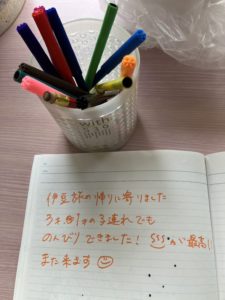 with
伊豆旅の帰りに寄りました
3才と1才の子連れでも
のんびりできました!
が最高!!
また来ます